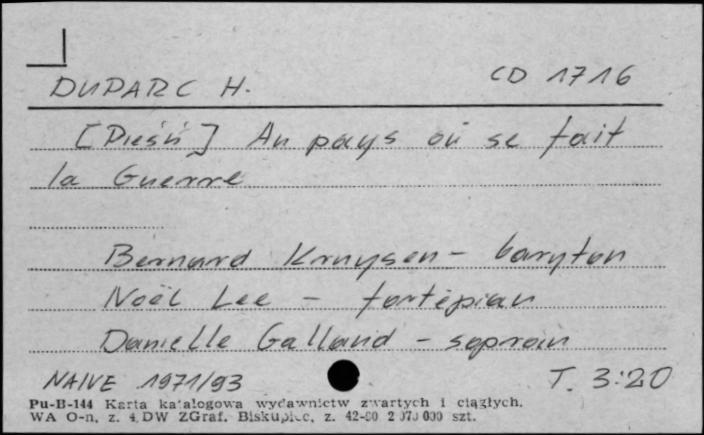 DUPARC H. CD 1716
[Pieśń] Au pays où se fait
la Guerre
Bernard Kruysen - baryton
Noël Lee - fortepian
Danielle Galland - sopran
NAIVE 1971/93 T. 3:20
Pu-B-144 Karta katalogowa wydawnictw zwartych i ciągłych.
WA O-n, z. 4, DW ZGraf. Biskupiec, z. 42-80 2 070 000 szt.